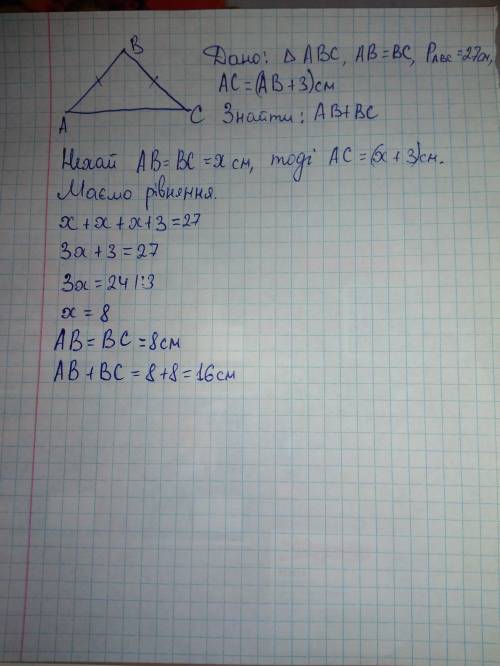 B
A
C
Дано: △ ABC, AB = BC, P ABC = 27см,
AC = (AB + 3) см
Знайти: AB + BC
Нехай AB = BC = x см, тоді AC = (x + 3) см.
Маємо рівняння.
x + x + x + 3 = 27
3x + 3 = 27
3x = 24 |:3
x = 8
AB = BC = 8см
AB + BC = 8 + 8 = 16см